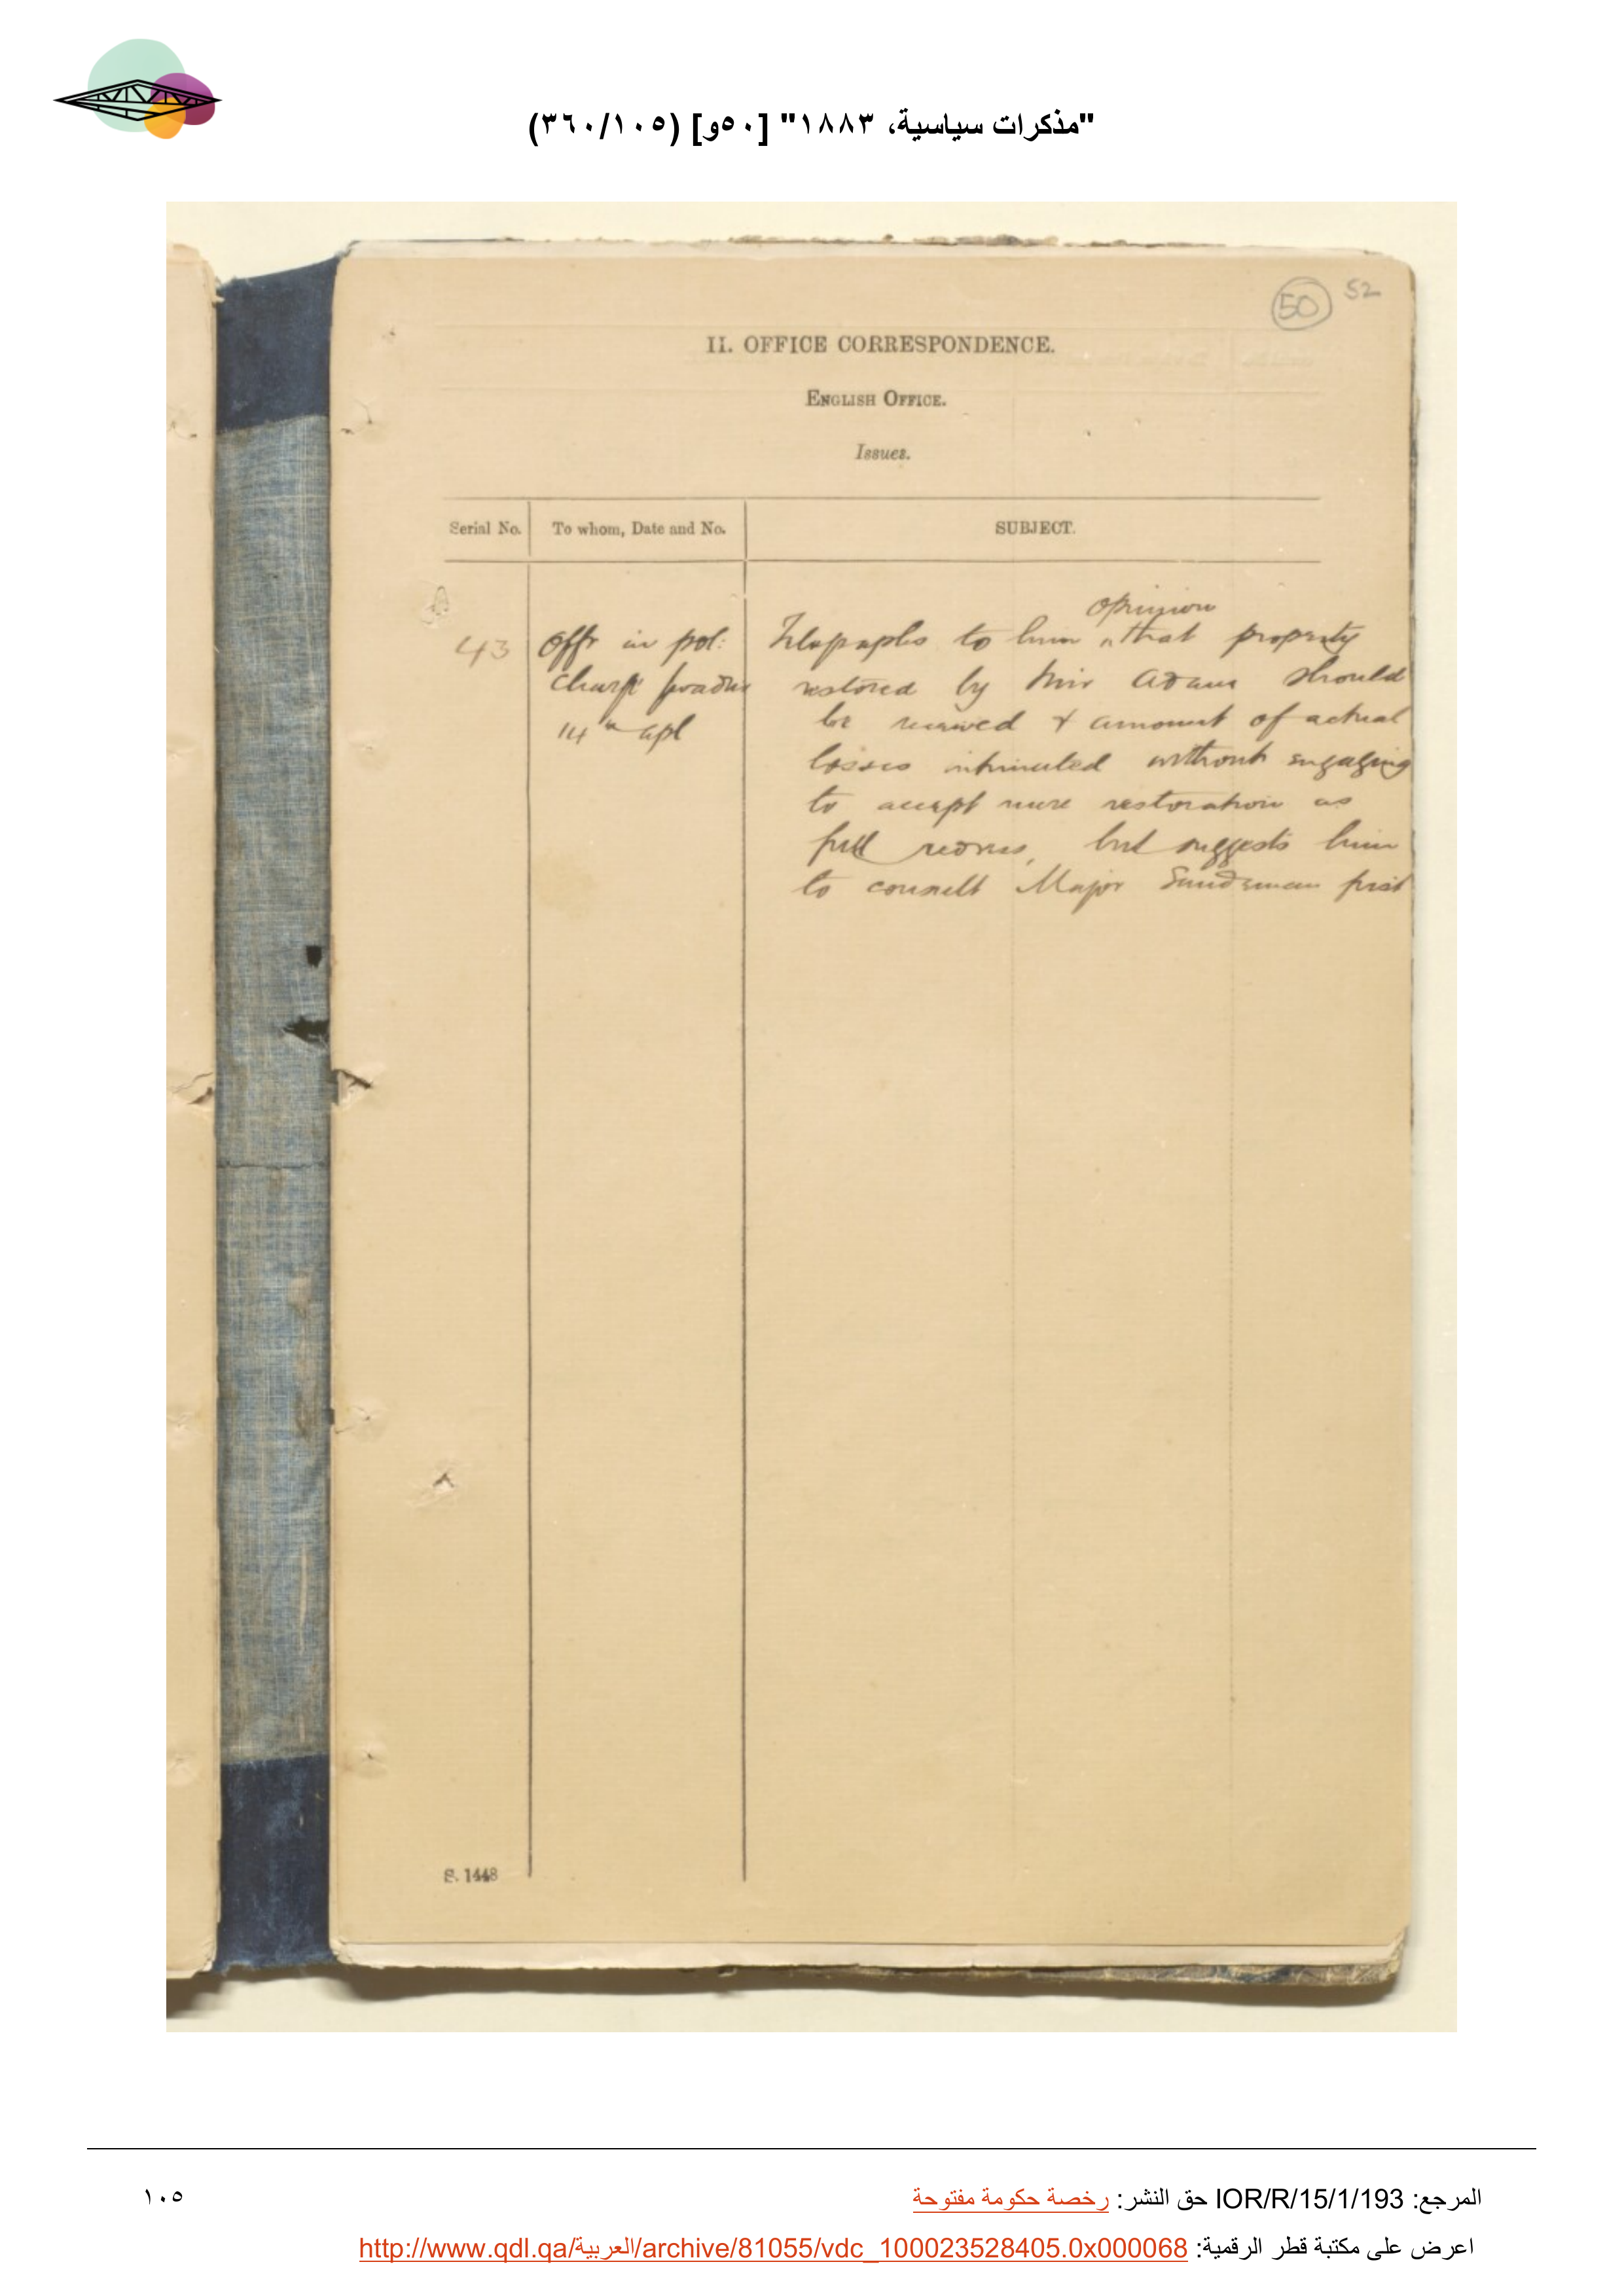 "مذكرات سياسية، ١٨٨٣" [٥٠و] (٣٦٠/١٠٥)
50 52
II. OFFICE CORRESPONDENCE.
ENGLISH OFFICE.
Issues.
Serial No. To whom, Date and No. SUBJECT.
43 Offr in pol: Telegraphs to him opinion that property
charge restored by Mir Adam should
14th Apl be received & amount of actual
losses intimated without engaging
to accept mere restoration as
full redress, but suggests him
to consult Major Sandeman first
S. 1448
المرجع: IOR/R/15/1/193 حق النشر: رخصة حكومة مفتوحة
١٠٥
اعرض على مكتبة قطر الرقمية: http://www.qdl.qa/العربية/archive/81055/vdc_100023528405.0x000068